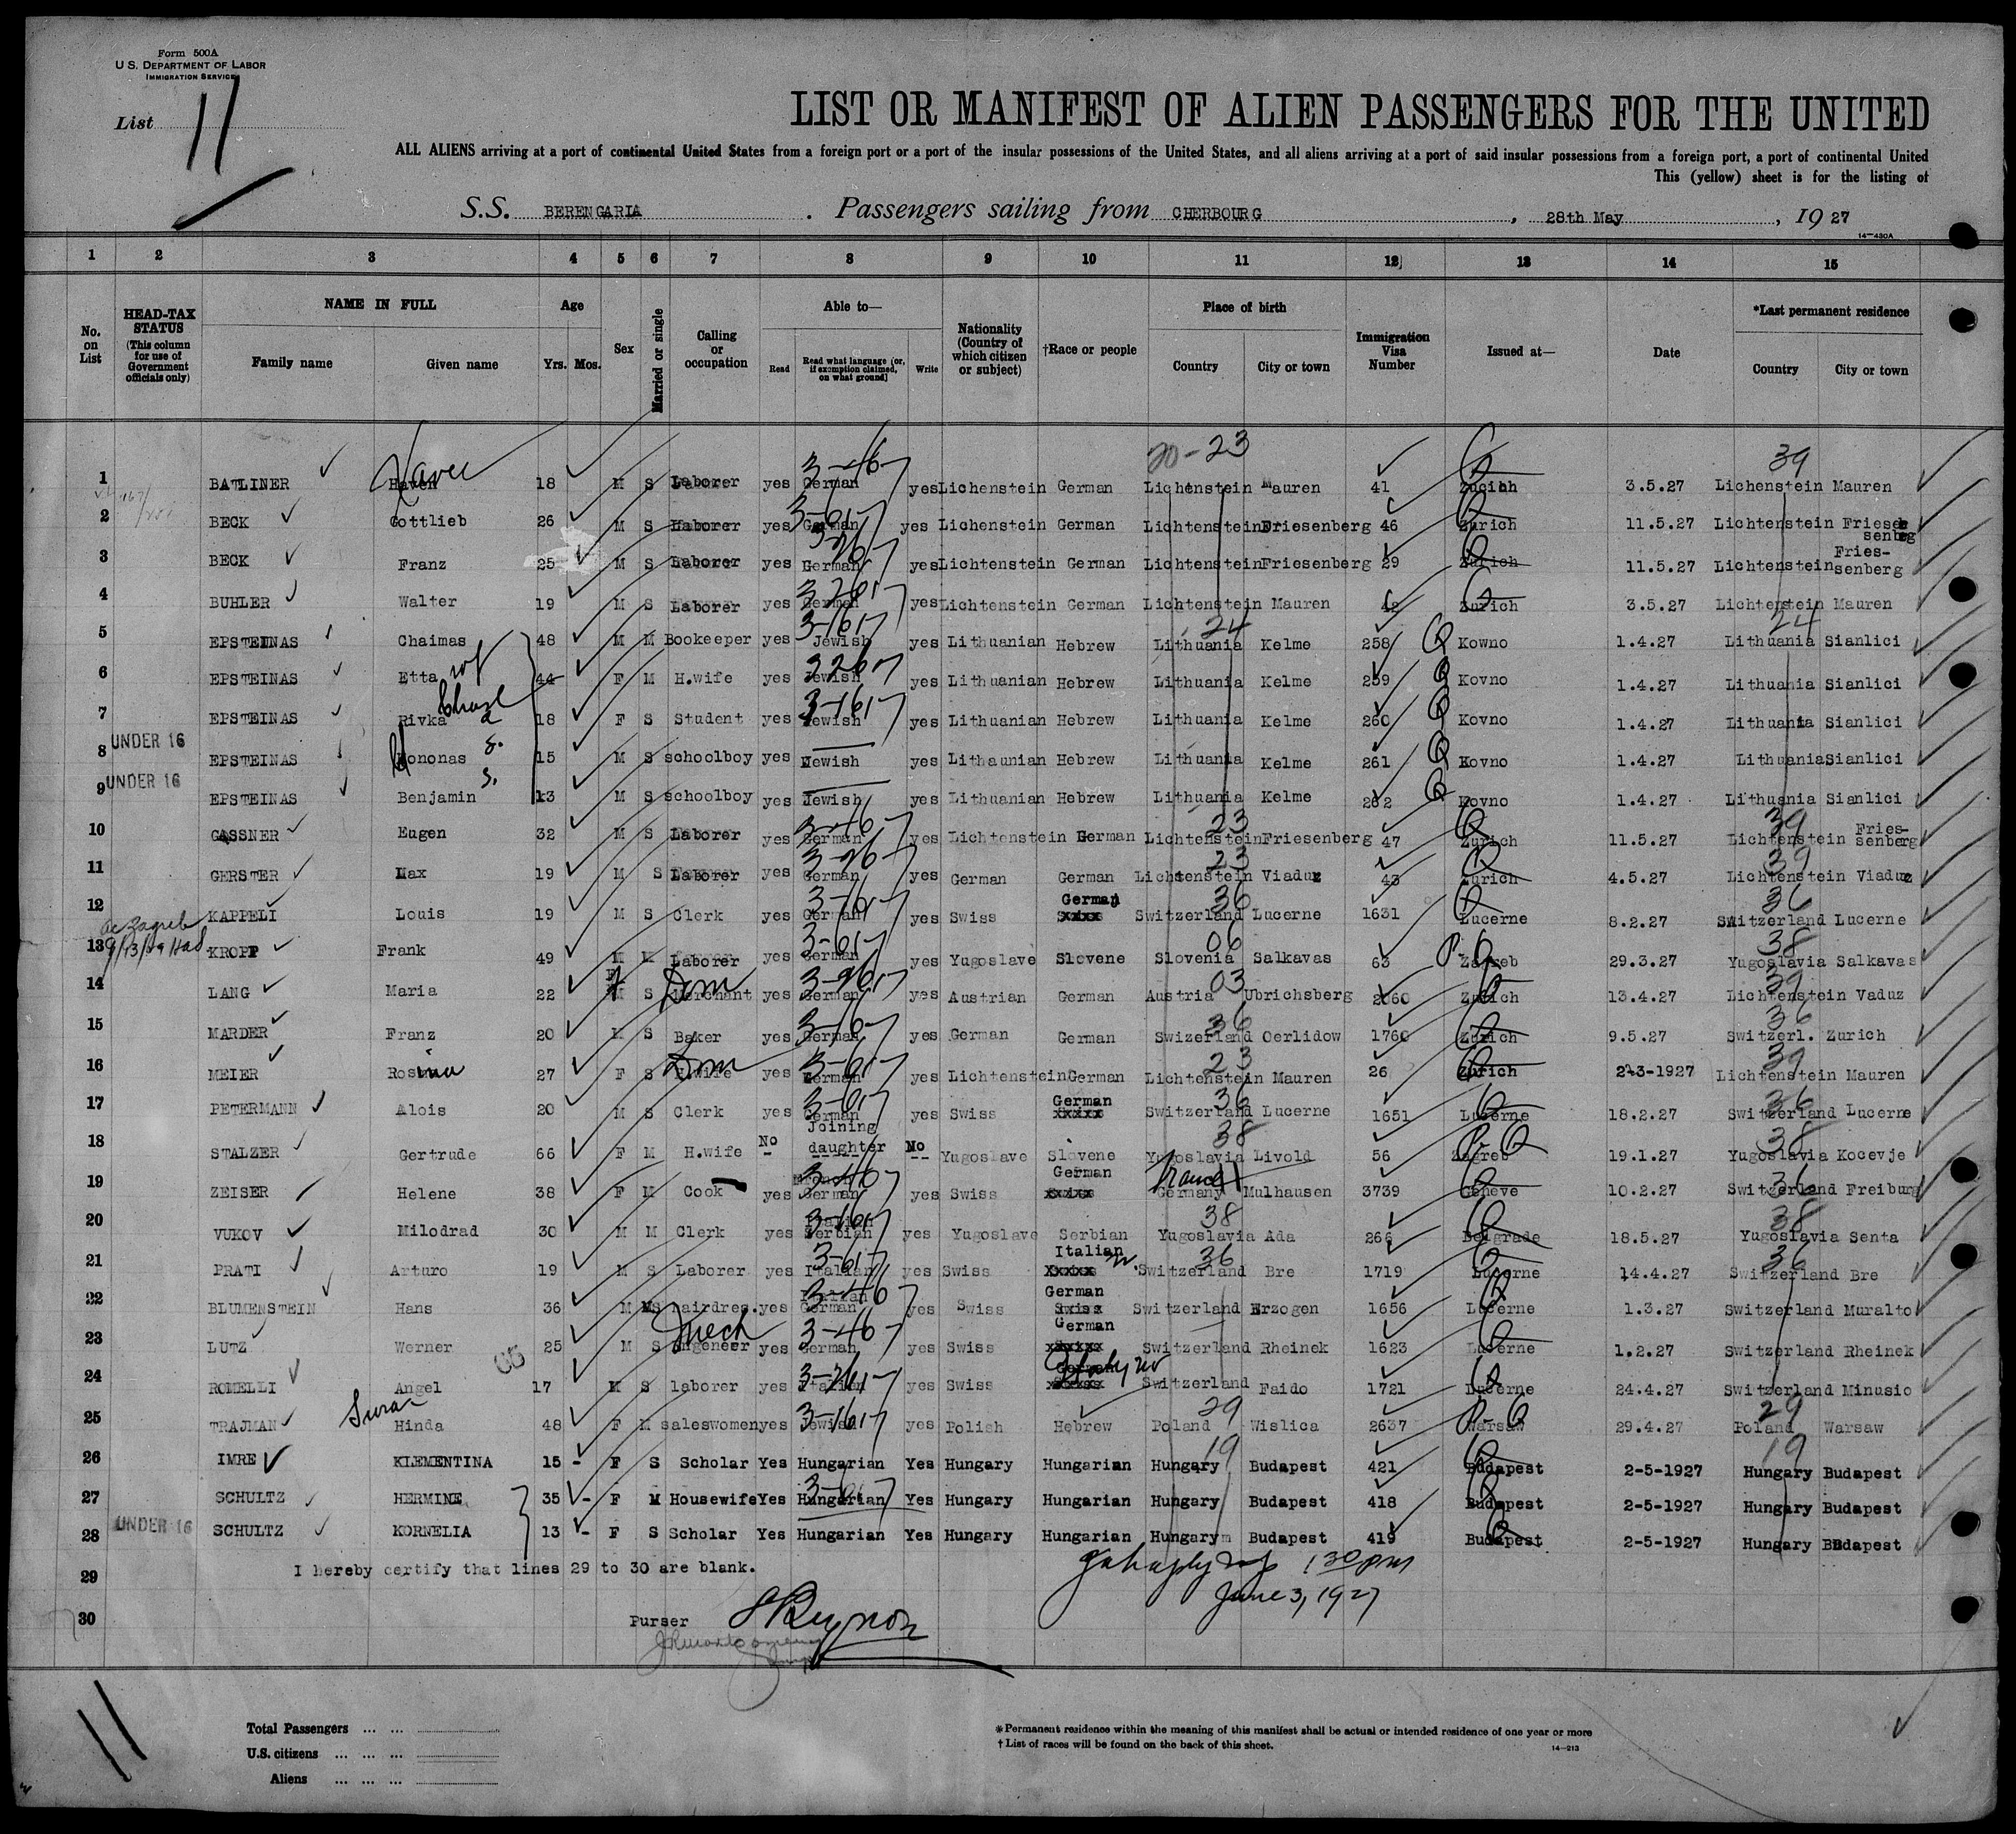 Form 500A
U.S. DEPARTMENT OF LABOR
IMMIGRATION SERVICE
List 11
LIST OR MANIFEST OF ALIEN PASSENGERS FOR THE UNITED
ALL ALIENS arriving at a port of continental United States from a foreign port or a port of the insular possessions of the United States, and all aliens arriving at a port of said insular possessions from a foreign port, a port of continental United
This (yellow) sheet is for the listing of
S.S. BERENGARIA . Passengers sailing from CHERBOURG , 28th May , 1927
14-430A
1 2 3 4 5 6 7 8 9 10 11 12 13 14 15
No. on List HEAD-TAX STATUS (This column for use of Government officials only) NAME IN FULL Family name Given name Age Yrs. Mos. Sex Married or single Calling or occupation Able to— Read Read what language (or, if exemption claimed, on what ground) Write Nationality (Country of which citizen or subject) †Race or people Place of birth Country City or town Immigration Visa Number Issued at— Date *Last permanent residence Country City or town
20-23 39
1 BATLINER Haven Xaver 18 M S Laborer yes German yes Lichenstein German Lichtenstein Mauren 41 Zurich 3.5.27 Lichenstein Mauren
2 BECK Gottlieb 26 M S Laborer yes German yes Lichenstein German Lichtenstein Friesenberg 46 Zurich 11.5.27 Lichtenstein Friesenberg
3 BECK Franz 25 M S Laborer yes German yes Lichtenstein German Lichtenstein Friesenberg 29 Zurich 11.5.27 Lichtenstein Fries-senberg
4 BUHLER Walter 19 M S Laborer yes German yes Lichtenstein German Lichtenstein Mauren 42 Zurich 3.5.27 Lichtenstein Mauren
5 EPSTEINAS Chaimas 48 M M Bookeeper yes Jewish yes Lithuanian Hebrew Lithuania 24 Kelme 258 Kowno 1.4.27 Lithuania 24 Sianlici
6 EPSTEINAS Etta wf 44 F M H.wife yes Jewish yes Lithuanian Hebrew Lithuania Kelme 259 Kovno 1.4.27 Lithuania Sianlici
7 EPSTEINAS Rivka d 18 F S Student yes Jewish yes Lithuanian Hebrew Lithuania Kelme 260 Kovno 1.4.27 Lithuania Sianlici
8 UNDER 16 EPSTEINAS Hononas s. 15 M S schoolboy yes Jewish yes Lithaunian Hebrew Lithuania Kelme 261 Kovno 1.4.27 Lithuania Sianlici
9 UNDER 16 EPSTEINAS Benjamin s. 13 M S schoolboy yes Jewish yes Lithuanian Hebrew Lithuania Kelme 262 Kovno 1.4.27 Lithuania Sianlici
10 GASSNER Eugen 32 M S Laborer yes German yes Lichtenstein German Lichtenstein 23 Friesenberg 47 Zurich 11.5.27 Lichtenstein 39 Fries-senberg
11 GERSTER Max 19 M S Laborer yes German yes German German Lichtenstein 23 Viaduz 43 Zurich 4.5.27 Lichtenstein 39 Viaduz
12 KAPPELI Louis 19 M S Clerk yes German yes Swiss German Switzerland 36 Lucerne 1631 Lucerne 8.2.27 Switzerland 36 Lucerne
13 KROPF Frank 49 M M Laborer yes German yes Yugoslave Slovene Slovenia 06 Salkavas 63 Zagreb 29.3.27 Yugoslavia 38 Salkavas
14 LANG Maria 22 F S Merchant Dom yes German yes Austrian German Austria 03 Ubrichsberg 2060 Zurich 13.4.27 Lichtenstein 39 Vaduz
15 MARDER Franz 20 M S Baker yes German yes German German Swizerland 36 Oerlidow 1760 Zurich 9.5.27 Switzerl. 36 Zurich
16 MEIER Rosina 27 F S H.wife Dom yes German yes Lichtenstein German Lichtenstein 23 Mauren 26 Zurich 2-3-1927 Lichtenstein 39 Mauren
17 PETERMANN Alois 20 M S Clerk yes German yes Swiss German Switzerland 36 Lucerne 1651 Lucerne 18.2.27 Switzerland 36 Lucerne
18 STALZER Gertrude 66 F M H.wife No Joining daughter No Yugoslave Slovene Yugoslavia 38 Livold 56 Zagreb 19.1.27 Yugoslavia 38 Kocevje
19 ZEISER Helene 38 F M Cook yes German yes Swiss German Germany France Mulhausen 3739 Geneve 10.2.27 Switzerland 36 Freiburg
20 VUKOV Milodrad 30 M M Clerk yes Serbian yes Yugoslave Serbian Yugoslavia 38 Ada 266 Belgrade 18.5.27 Yugoslavia 38 Senta
21 PRATI Arturo 19 M S Laborer yes Italian yes Swiss Italian Switzerland 36 Bre 1719 Lucerne 14.4.27 Switzerland 36 Bre
22 BLUMENSTEIN Hans 36 M S hairdres. yes German yes Swiss German Switzerland Erzogen 1656 Lucerne 1.3.27 Switzerland Muralto
23 LUTZ Werner 25 M S Engeneer Mech yes German yes Swiss German Switzerland Rheinek 1623 Lucerne 1.2.27 Switzerland Rheinek
24 ROMELLI Angel 17 M S laborer yes Italian yes Swiss Switzerland Faido 1721 Lucerne 24.4.27 Switzerland Minusio
25 TRAJMAN Hinda 48 F M saleswomen yes Jewish yes Polish Hebrew Poland 29 Wislica 2637 Warsaw 29.4.27 Poland 29 Warsaw
26 IMRE KLEMENTINA 15 - F S Scholar Yes Hungarian Yes Hungary Hungarian Hungary 19 Budapest 421 Budapest 2-5-1927 Hungary 19 Budapest
27 SCHULTZ HERMINE 35 - F M Housewife Yes Hungarian Yes Hungary Hungarian Hungary Budapest 418 Budapest 2-5-1927 Hungary Budapest
28 UNDER 16 SCHULTZ KORNELIA 13 - F S Scholar Yes Hungarian Yes Hungary Hungarian Hungary Budapest 419 Budapest 2-5-1927 Hungary Budapest
I hereby certify that lines 29 to 30 are blank.
29 1 30 pm
June 3, 1927
30 Purser
11
Total Passengers ... ...
U.S. citizens ... ... ...
Aliens ... ... ...
*Permanent residence within the meaning of this manifest shall be actual or intended residence of one year or more
†List of races will be found on the back of this sheet.
14-213